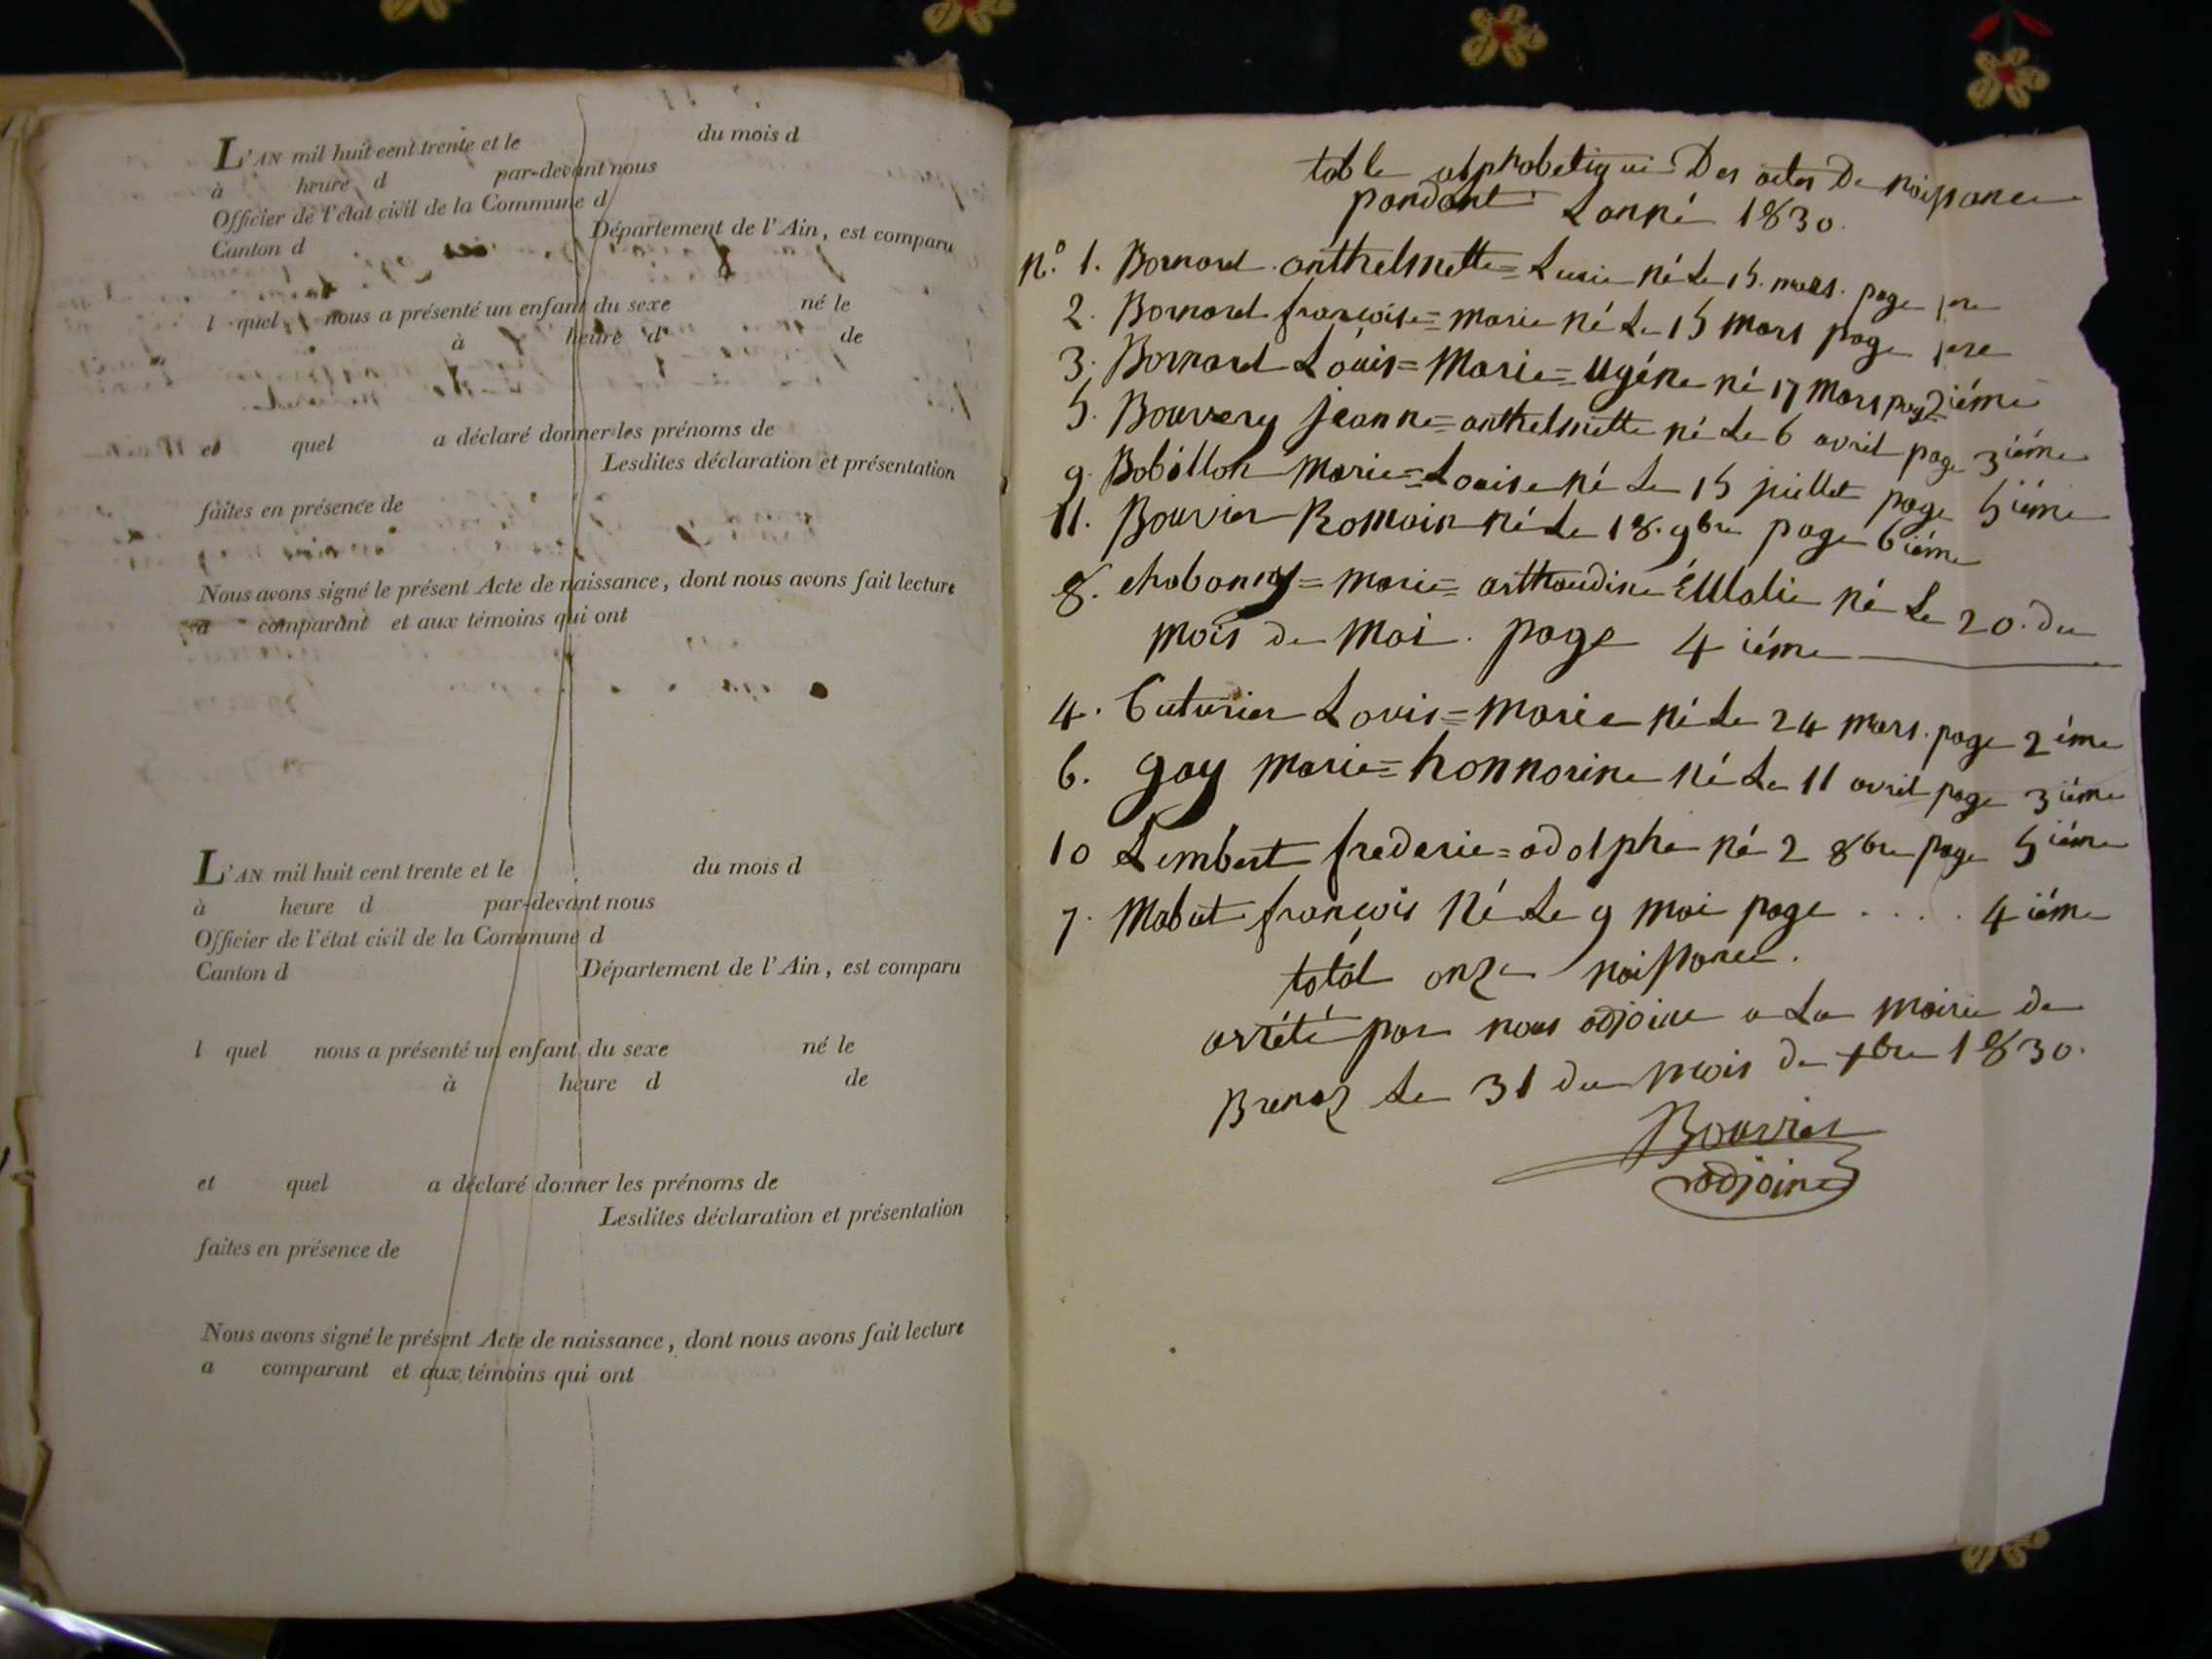 L'AN mil huit cent trente et le du mois d
à heure d par-devant nous
Officier de l'état civil de la Commune d
Canton d Département de l'Ain, est comparu
l quel nous a présenté un enfant du sexe né le
à heure d de
et quel a déclaré donner les prénoms de
Lesdites déclaration et présentation
faites en présence de
Nous avons signé le présent Acte de naissance, dont nous avons fait lecture
a comparant et aux témoins qui ont
L'AN mil huit cent trente et le du mois d
à heure d par-devant nous
Officier de l'état civil de la Commune d
Canton d Département de l'Ain, est comparu
l quel nous a présenté un enfant du sexe né le
à heure d de
et quel a déclaré donner les prénoms de
Lesdites déclaration et présentation
faites en présence de
Nous avons signé le présent Acte de naissance, dont nous avons fait lecture
a comparant et aux témoins qui ont
table alphabetique Des actes De naissance
pandant Lanné 1830.
n.° 1. Bornard anthelmette = Lucie né Le 15. mars. page 1ere
2. Bornard françoise = marie né Le 15 mars page 1ere
3. Bornard Louis = Marie = Ugéne né 17 mars pag 2iéme
5. Bouvery jeanne = anthelmette né Le 6 avril page 3iéme
9. Bobillon Marie = Louise né Le 15 juillet page 5iéme
11. Bouvier Romain né Le 18. 9bre page 6iéme
8. chabanny = marie = né Le 20. du
mois de mai. page 4iéme
4. Cuturier Louis = marie né Le 24 mars. page 2iéme
6. gay marie = honnorine né Le 11 avril page 3iéme
10 Lembert frederic = adolphe né 2 8bre page 5iéme
7. Mabut françois Né Le 9 mai page . . . . 4iéme
total onze naissance.
arrété par nous adjoint a La mairie de
Brenaz Le 31 du mois de 1830.
Bouvier
adjoint